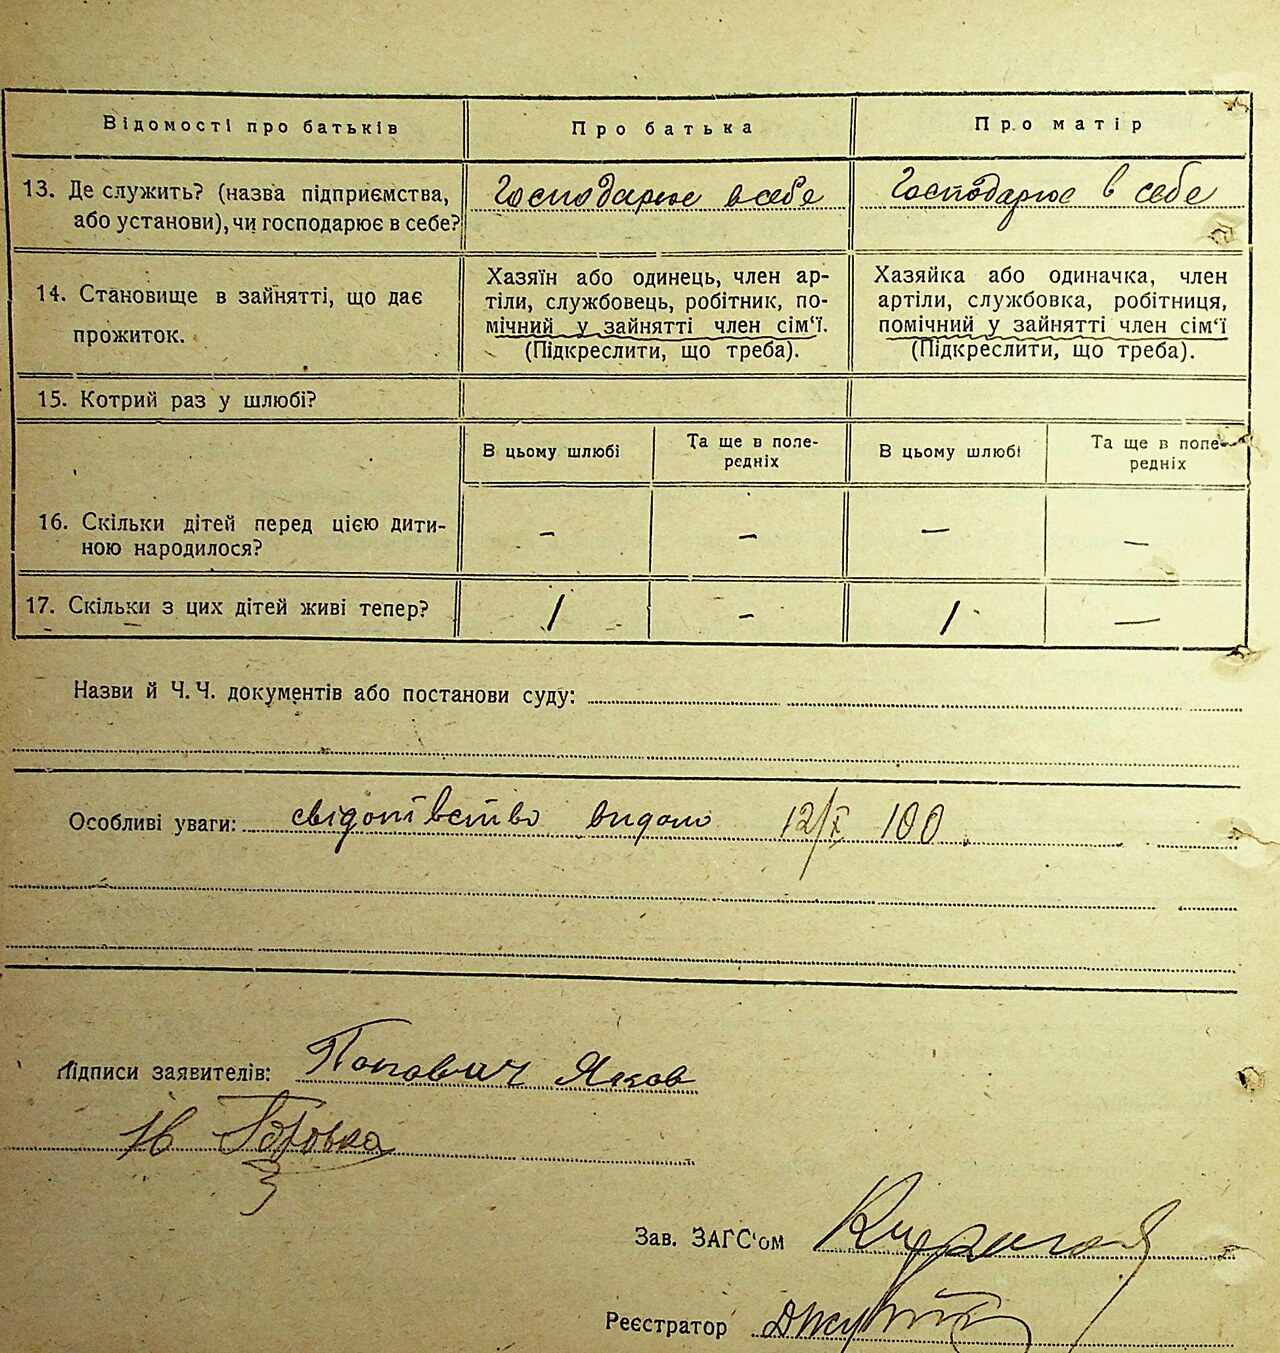 Відомості про батьків
Про батька
Про матір
13. Де служить? (назва підприємства,
або установи), чи господарює в себе?
Господарює в себе
Господарює в себе
14. Становище в зайнятті, що дає
прожиток.
Хазяїн або одинець, член ар-
тіли, службовець, робітник, по-
мічний у зайнятті член сім'ї.
(Підкреслити, що треба).
Хазяйка або одиначка, член
артіли, службовка, робітниця,
помічний у зайнятті член сім'ї
(Підкреслити, що треба).
15. Котрий раз у шлюбі?
В цьому шлюбі
Та ще в попе-
редніх
В цьому шлюбі
Та ще в попе-
редніх
16. Скільки дітей перед цією дити-
ною народилося?
–
–
–
–
17. Скільки з цих дітей живі тепер?
1
–
1
–
Назви й Ч. Ч. документів або постанови суду:
Особливі уваги: свідотвство видано 12/X 100
Підписи заявителів: Попович Яков
Зав. ЗАГС'ом
Реєстратор